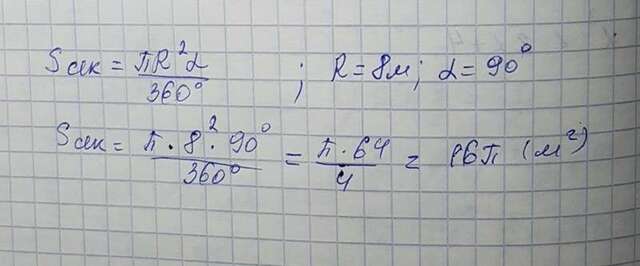 Sсек = πR²α / 360° ; R = 8м; α = 90°
Sсек = π · 8² · 90° / 360° = π · 64 / 4 = 16π (м²)